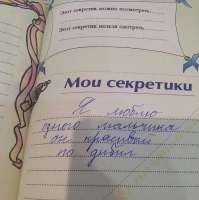 Этот секретик можно посмотреть.
Этот секретик нельзя смотреть.
Мои секретики
Я люблю
одного мальчика
он красивый
но дибил